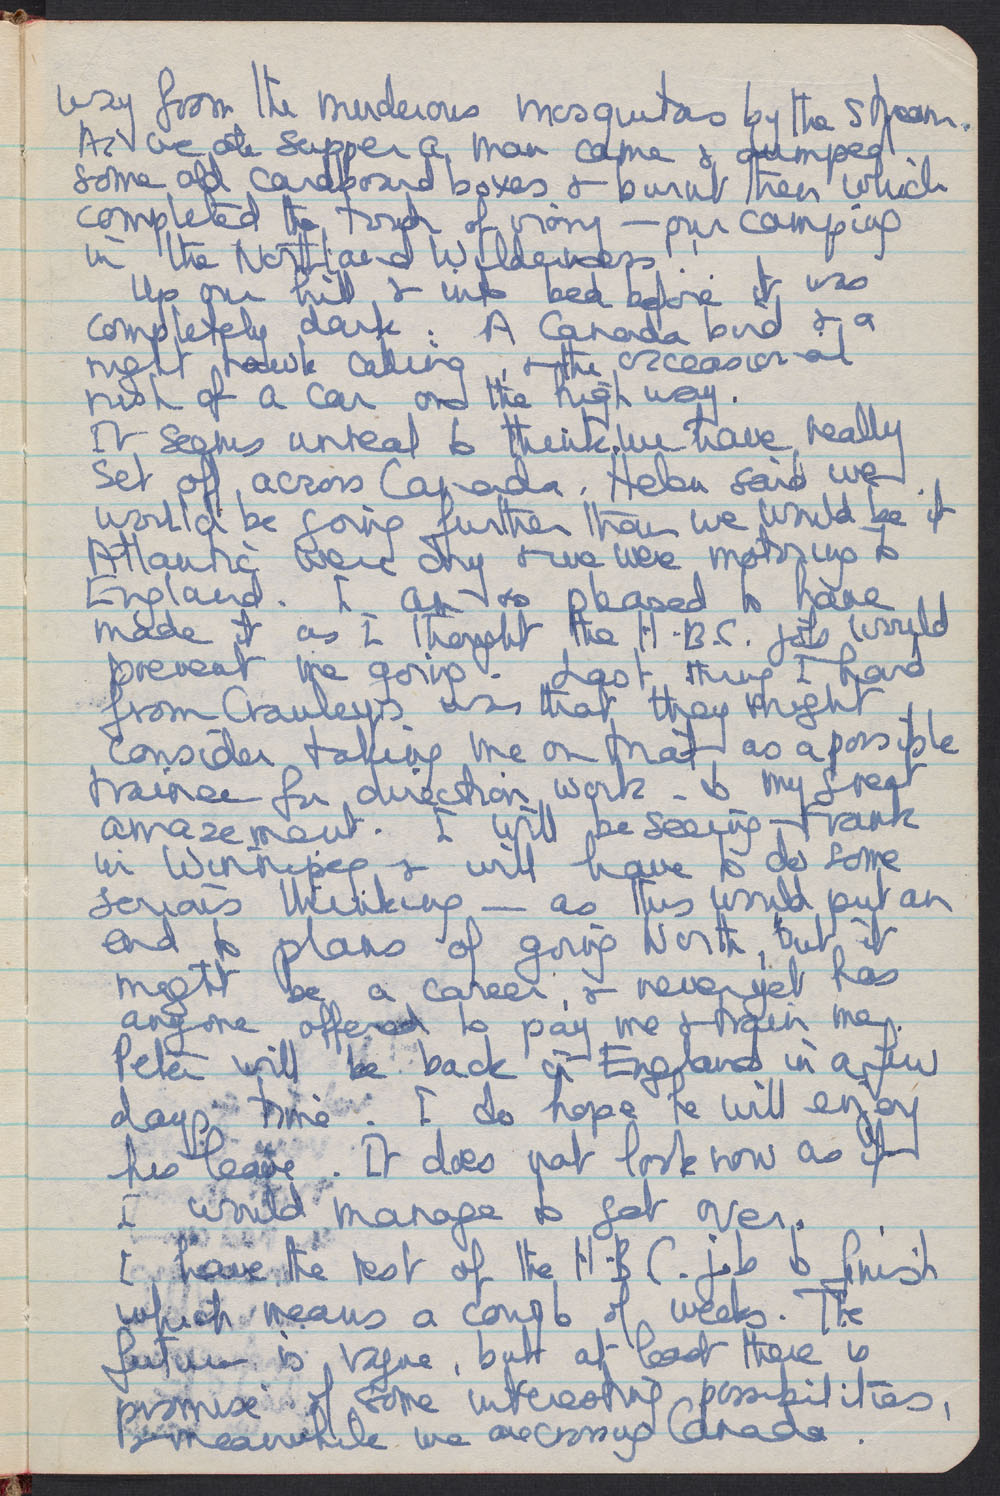 way from the murderous mosquitos by the stream.
As we ate supper a man came & dumped
some old cardboard boxes & burnt them which
completed the touch of irony — our camping
in the Northland Wilderness.
Up our hill & into bed before it was
completely dark. A Canada bird & a
night hawk calling, & the occasional
rush of a car on the high way.
It seems unreal to think we have really
set off across Canada. Helen said we
would be going further than we would be if
Atlantic were dry & we were motoring to
England. I am so pleased to have
made it as I thought the H.B.C. job would
prevent me going. Last thing I heard
from Crawleys was that they might
consider taking me on trial as a possible
trainee for direction work - to my great
amazement. I will be seeing Frank
in Winnipeg & will have to do some
serious thinking — as this would put an
end to plans of going North, but it
might be a career, & never yet has
anyone offered to pay me & train me.
Peter will be back in England in a few
days time. I do hope he will enjoy
his leave. It does not look now as if
I would manage to get over.
I have the rest of the H.B.C. job to finish
which means a couple of weeks. The
future is vague, but at least there is
promise of some interesting possibilities,
& meanwhile we are crossing Canada.